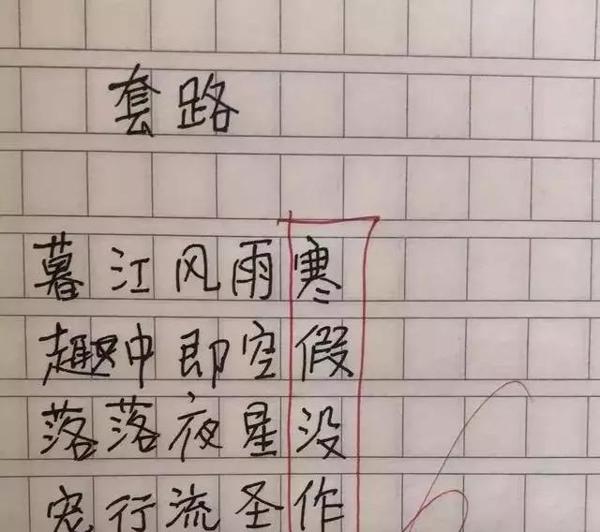 套路
暮江风雨寒
趣中即空假
落落夜星没
宏行流圣作